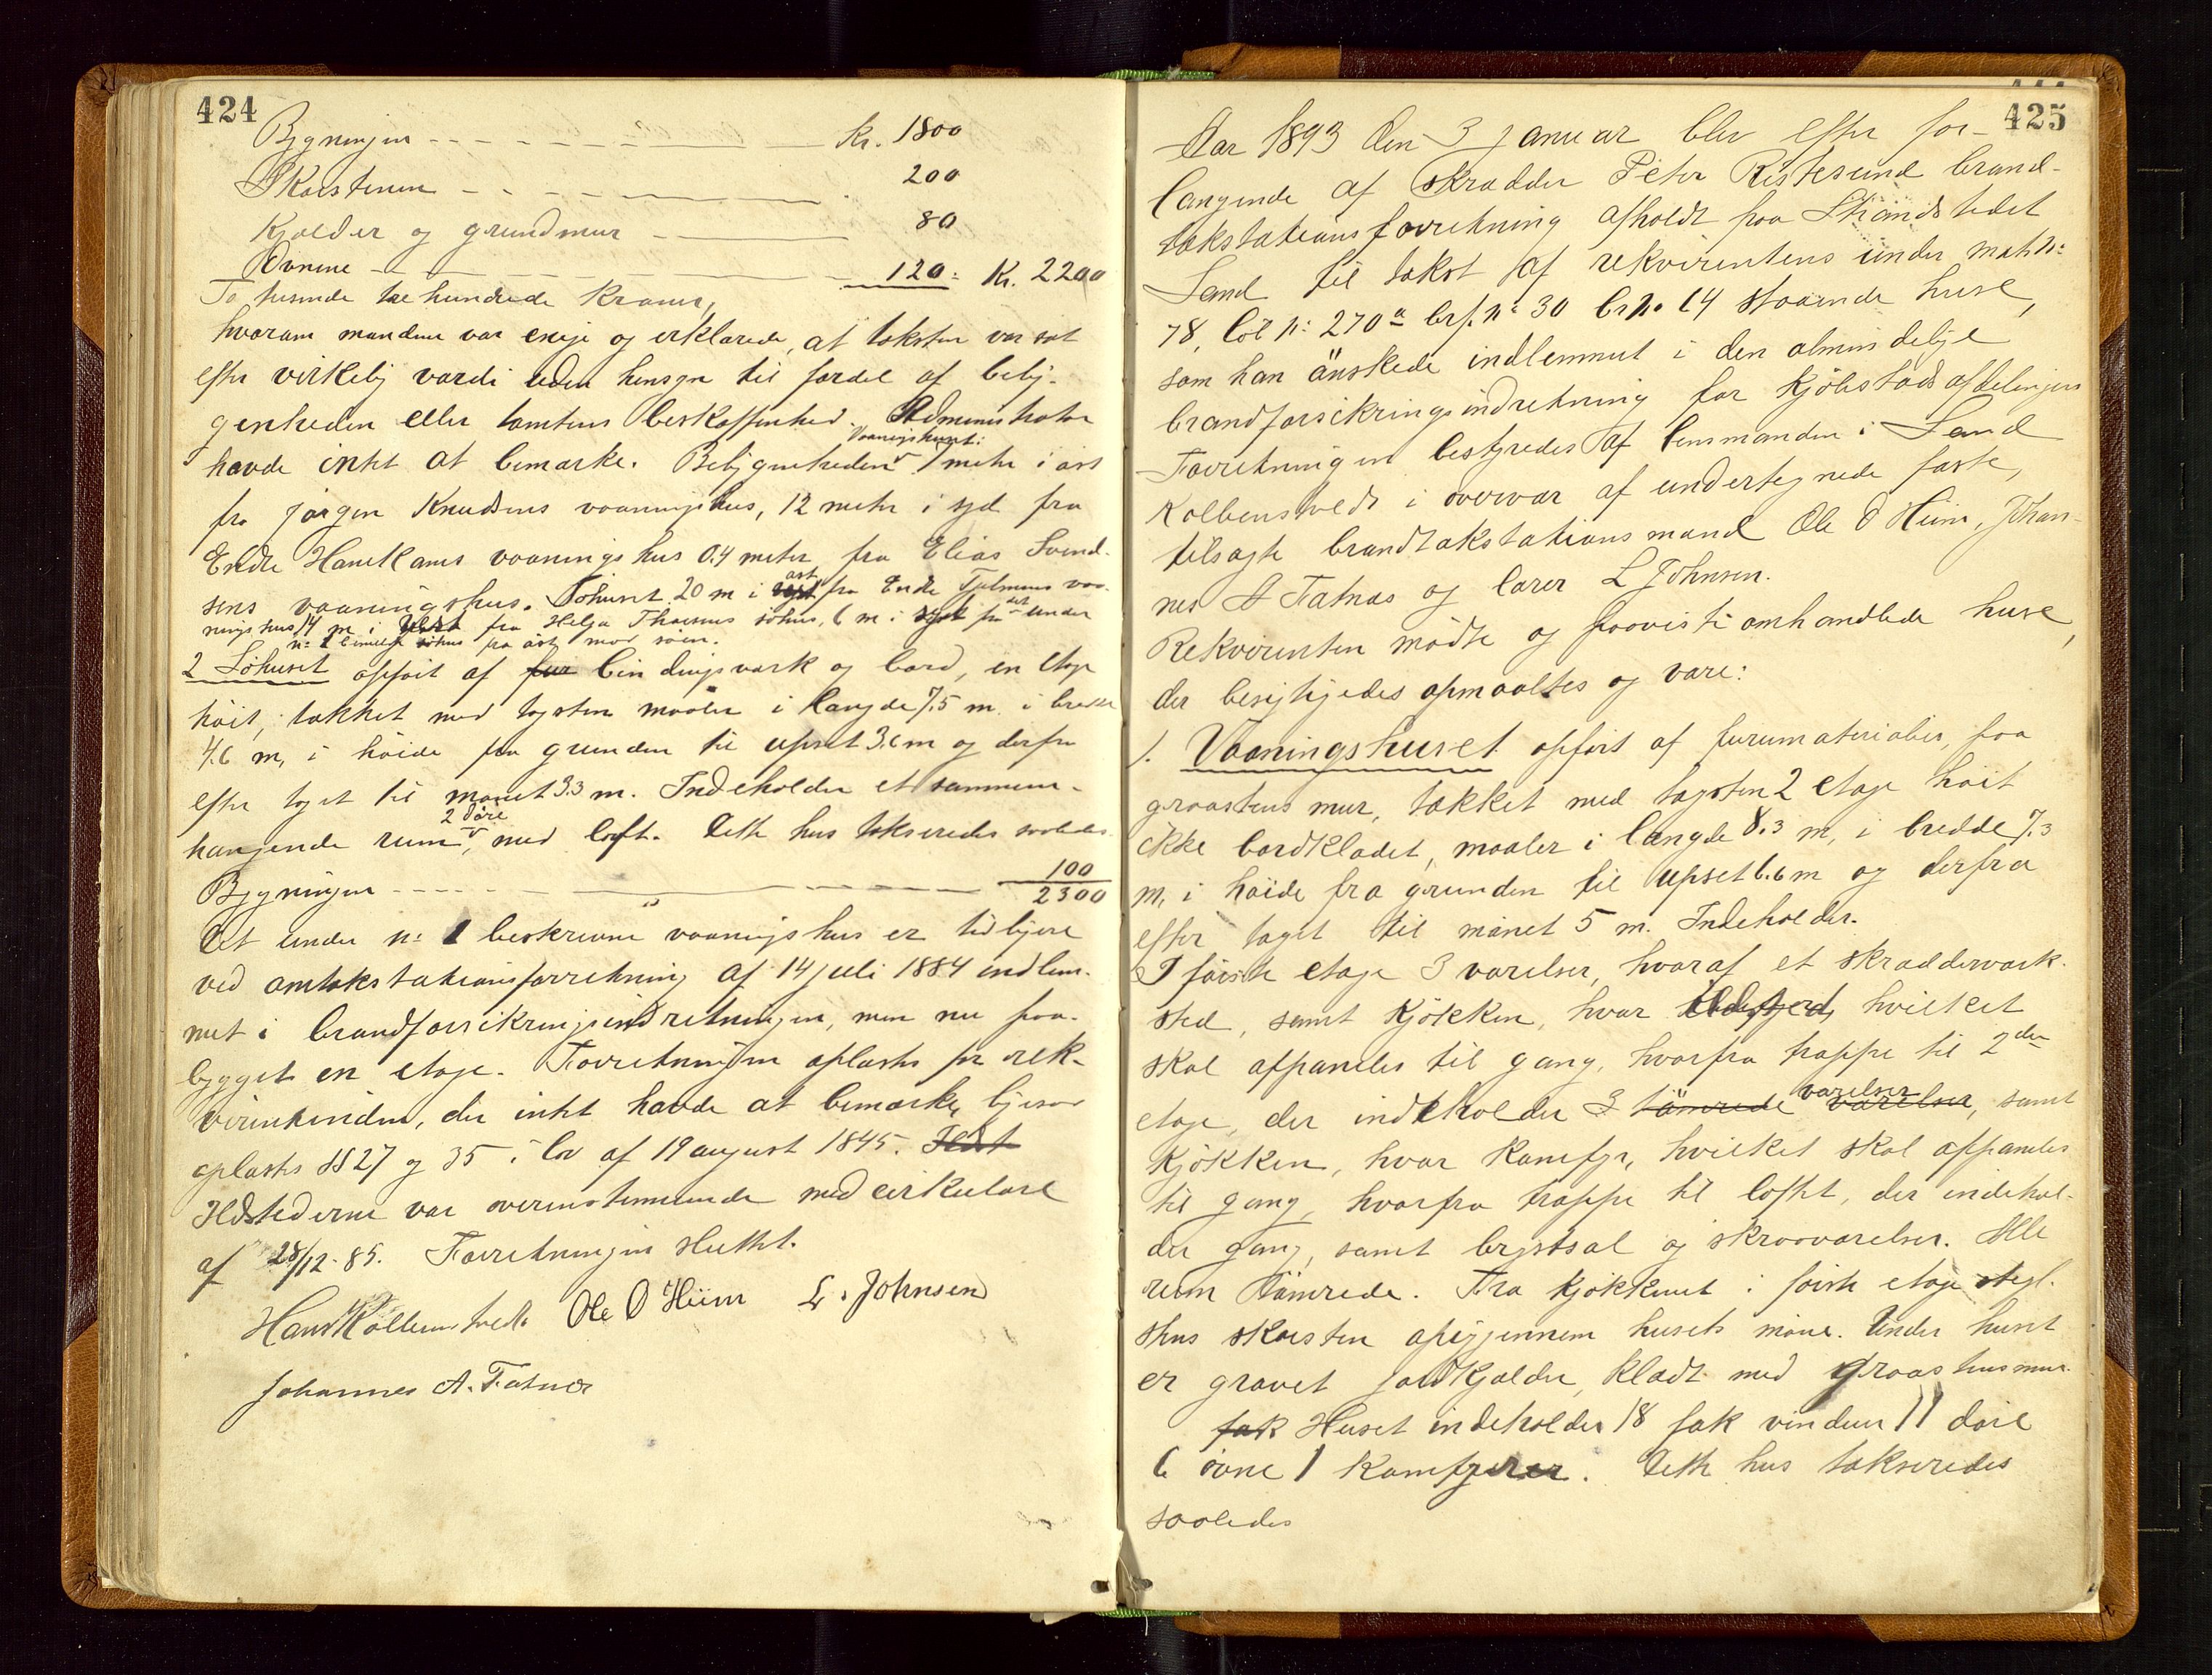 424
Bygningen Kr. 1800
Skorstenen 200
Kjælder og grundmur 80
Ovnene 120: Kr. 2200
To tusinde to hundrede Kroner,
hvorom mændene var enige og erklærede, at taksten var sat
efter virkelig værdi uden hensyn til fordel af belig-
genheden eller tomtens beskaffenhed. Administrator
havde intet at bemærke. Beliggenheden Vaaningshuset: 7 meter i øst
fra Jørgen Knudsens vaaningshus, 12 meter i syd fra
Endre Hanekams vaaningshus 0.4 meter fra Elias Svend-
sens vaaningshus. Søhuset 20 m i øst fra Endre Tjelmens vaa-
ningshus, 14 m i fra Helge Thorsens søhus, 6 m i syd fra det under
n: 1 søhus fra øst mod søen.
2 Søhuset opført af fur bindingsverk og bord, en etage
høit, tækket med tagsten maaler i længde 7.5 m. i bredde
4.6 m, i høide fra grunden til upset 3.6 m og derfra
efter taget til mønet 3.3 m. Indeholder et sammen-
hængende rum, 2 døre med loft. Dette hus takseredes saaledes
Bygningen 100
2300
Det under n: 1 beskrevne vaaningshus er tidligere
ved omtakstationsforretning af 14 juli 1884 indlem-
met i brandforsikringsindretningen, men nu paa-
bygget en etage. Forretningen oplæstes for rek-
virentinden, der intet havde at bemærke, ligesom
oplæstes §§ 27 og 35 i lov af 19 august 1845. Ildst
Ildstederne var overensstemmende med cirkulære
af 28/12-85. Forretningen sluttet.
Hans Kolbenstvedt Ole O Hiim L. Johnsen
Johannes A. Fatnes
425
Aar 1893 den 3 januar blev efter for-
langende af Skrædder Peter Ristesund brand-
takstationsforretning afholdt paa Strandstedet
Sand til takst af rekvirentens under mat. n:
78, løb n: 270a brf. n: 30 br. n. 14 staaende huse,
som han ønskede indlemmet i den almindelige
brandforsikringsindretning for kjøbstadsafdelingen
Forretningen bestyredes af lensmanden i Sand
Kolbenstvedt i overvær af undertegnede faste,
tilsagte brandtakstationsmænd Ole O Hiim, Johan-
nes A Fatnes og lærer L Johnsen.
Rekvirenten mødte og paaviste omhandlede huse,
der besigtigedes opmaaltes og vare:
1. Vaaningshuset opført af furumaterialier, paa
graastens mur, tækket med tagsten 2 etage høit
ikke bordklædet, maaler i længde 8.3 m, i bredde 7.3
m, i høide fra grunden til upset 6.6 m og derfra
efter taget til mønet 5 m. Indeholder.
I første etage 3 værelser, hvoraf et skrædderværk-
sted, samt kjøkken, hvor hvilket
skal afpaneles til gang, hvorfra trappe til 2den
etage, der indeholder 3 tømrede værelser værelser, samt
kjøkken, hvor komfyr, hvilket skal afpaneles
til gang, hvorfra trappe til loftet, der indehol-
der gang, samt brystsal og skraaværelser. Alle
rum tømrede. Fra kjøkkenet i første etage tegl-
stens skorsten opigjennem husets møne. Under huset
er gravet jordkjælder, klædt med graastensmur.
fak Huset indeholder 18 fak vinduer 11 døre
6 ovne 1 komfyrer. Dette hus takseredes
saaledes